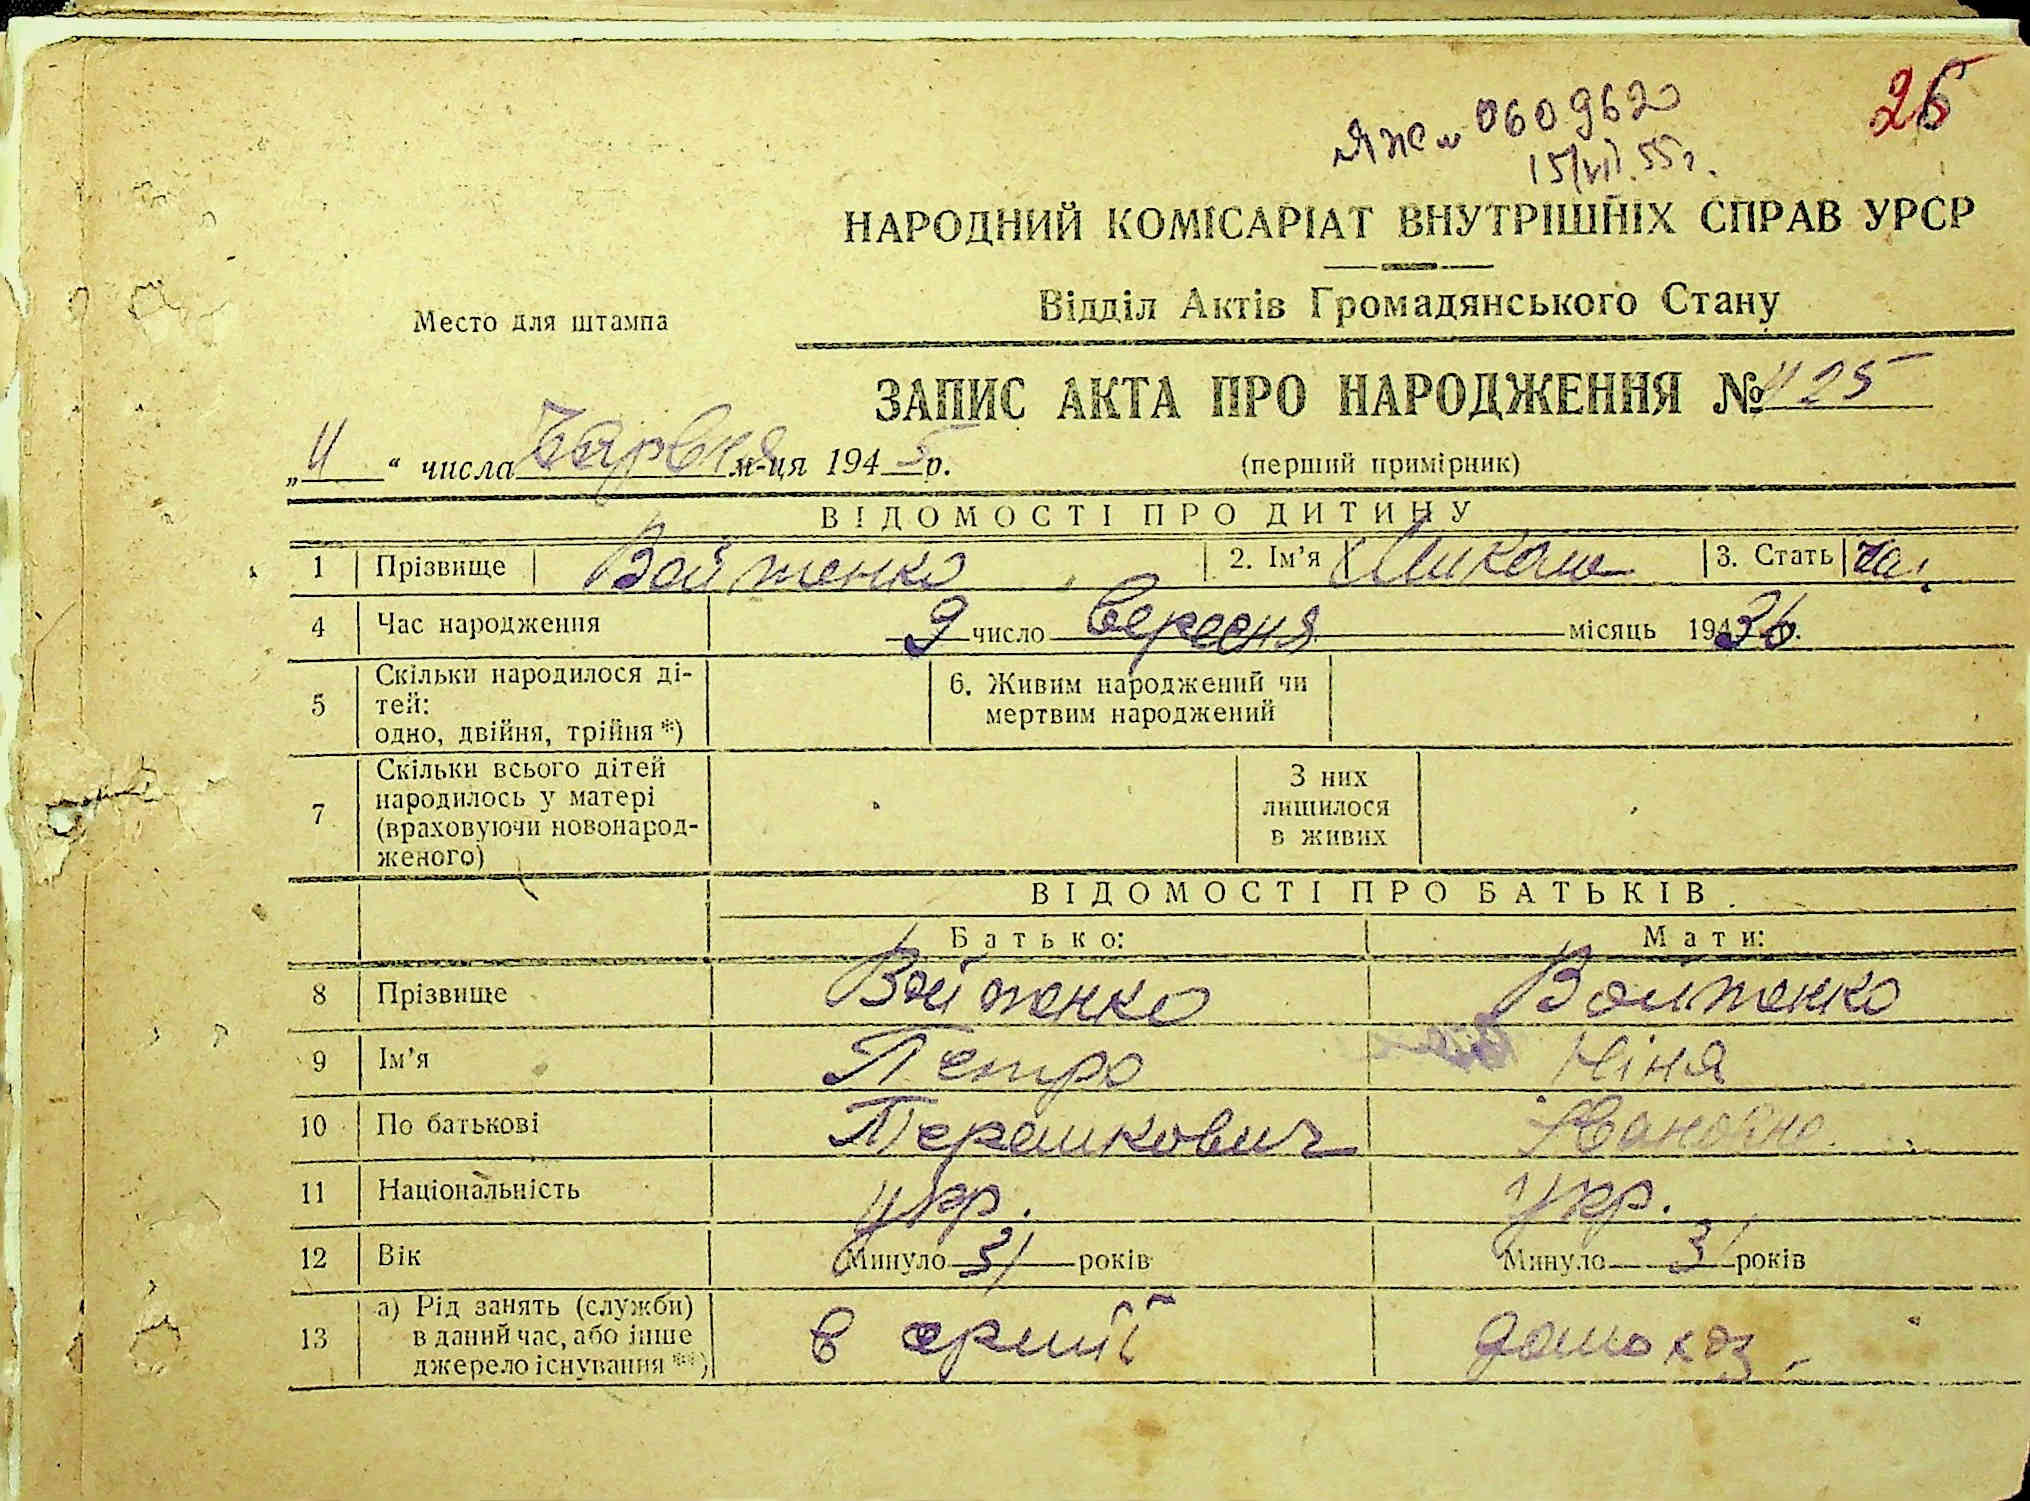 26
ЯЖ № 060962
15/VII.55г.
НАРОДНИЙ КОМІСАРІАТ ВНУТРІШНІХ СПРАВ УРСР
Відділ Актів Громадянського Стану
Место для штампа
ЗАПИС АКТА ПРО НАРОДЖЕННЯ № 1125
„ 11 “ числа Червня м-ця 1945 р. (перший примірник)
ВІДОМОСТІ ПРО ДИТИНУ
1 Прізвище Войтенко 2. Ім'я 3. Стать
4 Час народження 9 число Вересня місяць 1936 р.
5 Скільки народилося ді-
тей:
одно, двійня, трійня *)
6. Живим народжений чи
мертвим народжений
7 Скільки всього дітей
народилось у матері
(враховуючи новонарод-
женого)
З них
лишилося
в живих
ВІДОМОСТІ ПРО БАТЬКІВ
Батько: Мати:
8 Прізвище Войтенко Войтенко
9 Ім'я Петро Ніня
10 По батькові Івановна
11 Національність укр. укр.
12 Вік Минуло 31 років Минуло 31 років
13 а) Рід занять (служби)
в даний час, або інше
джерело існування **)
в армії домохоз.